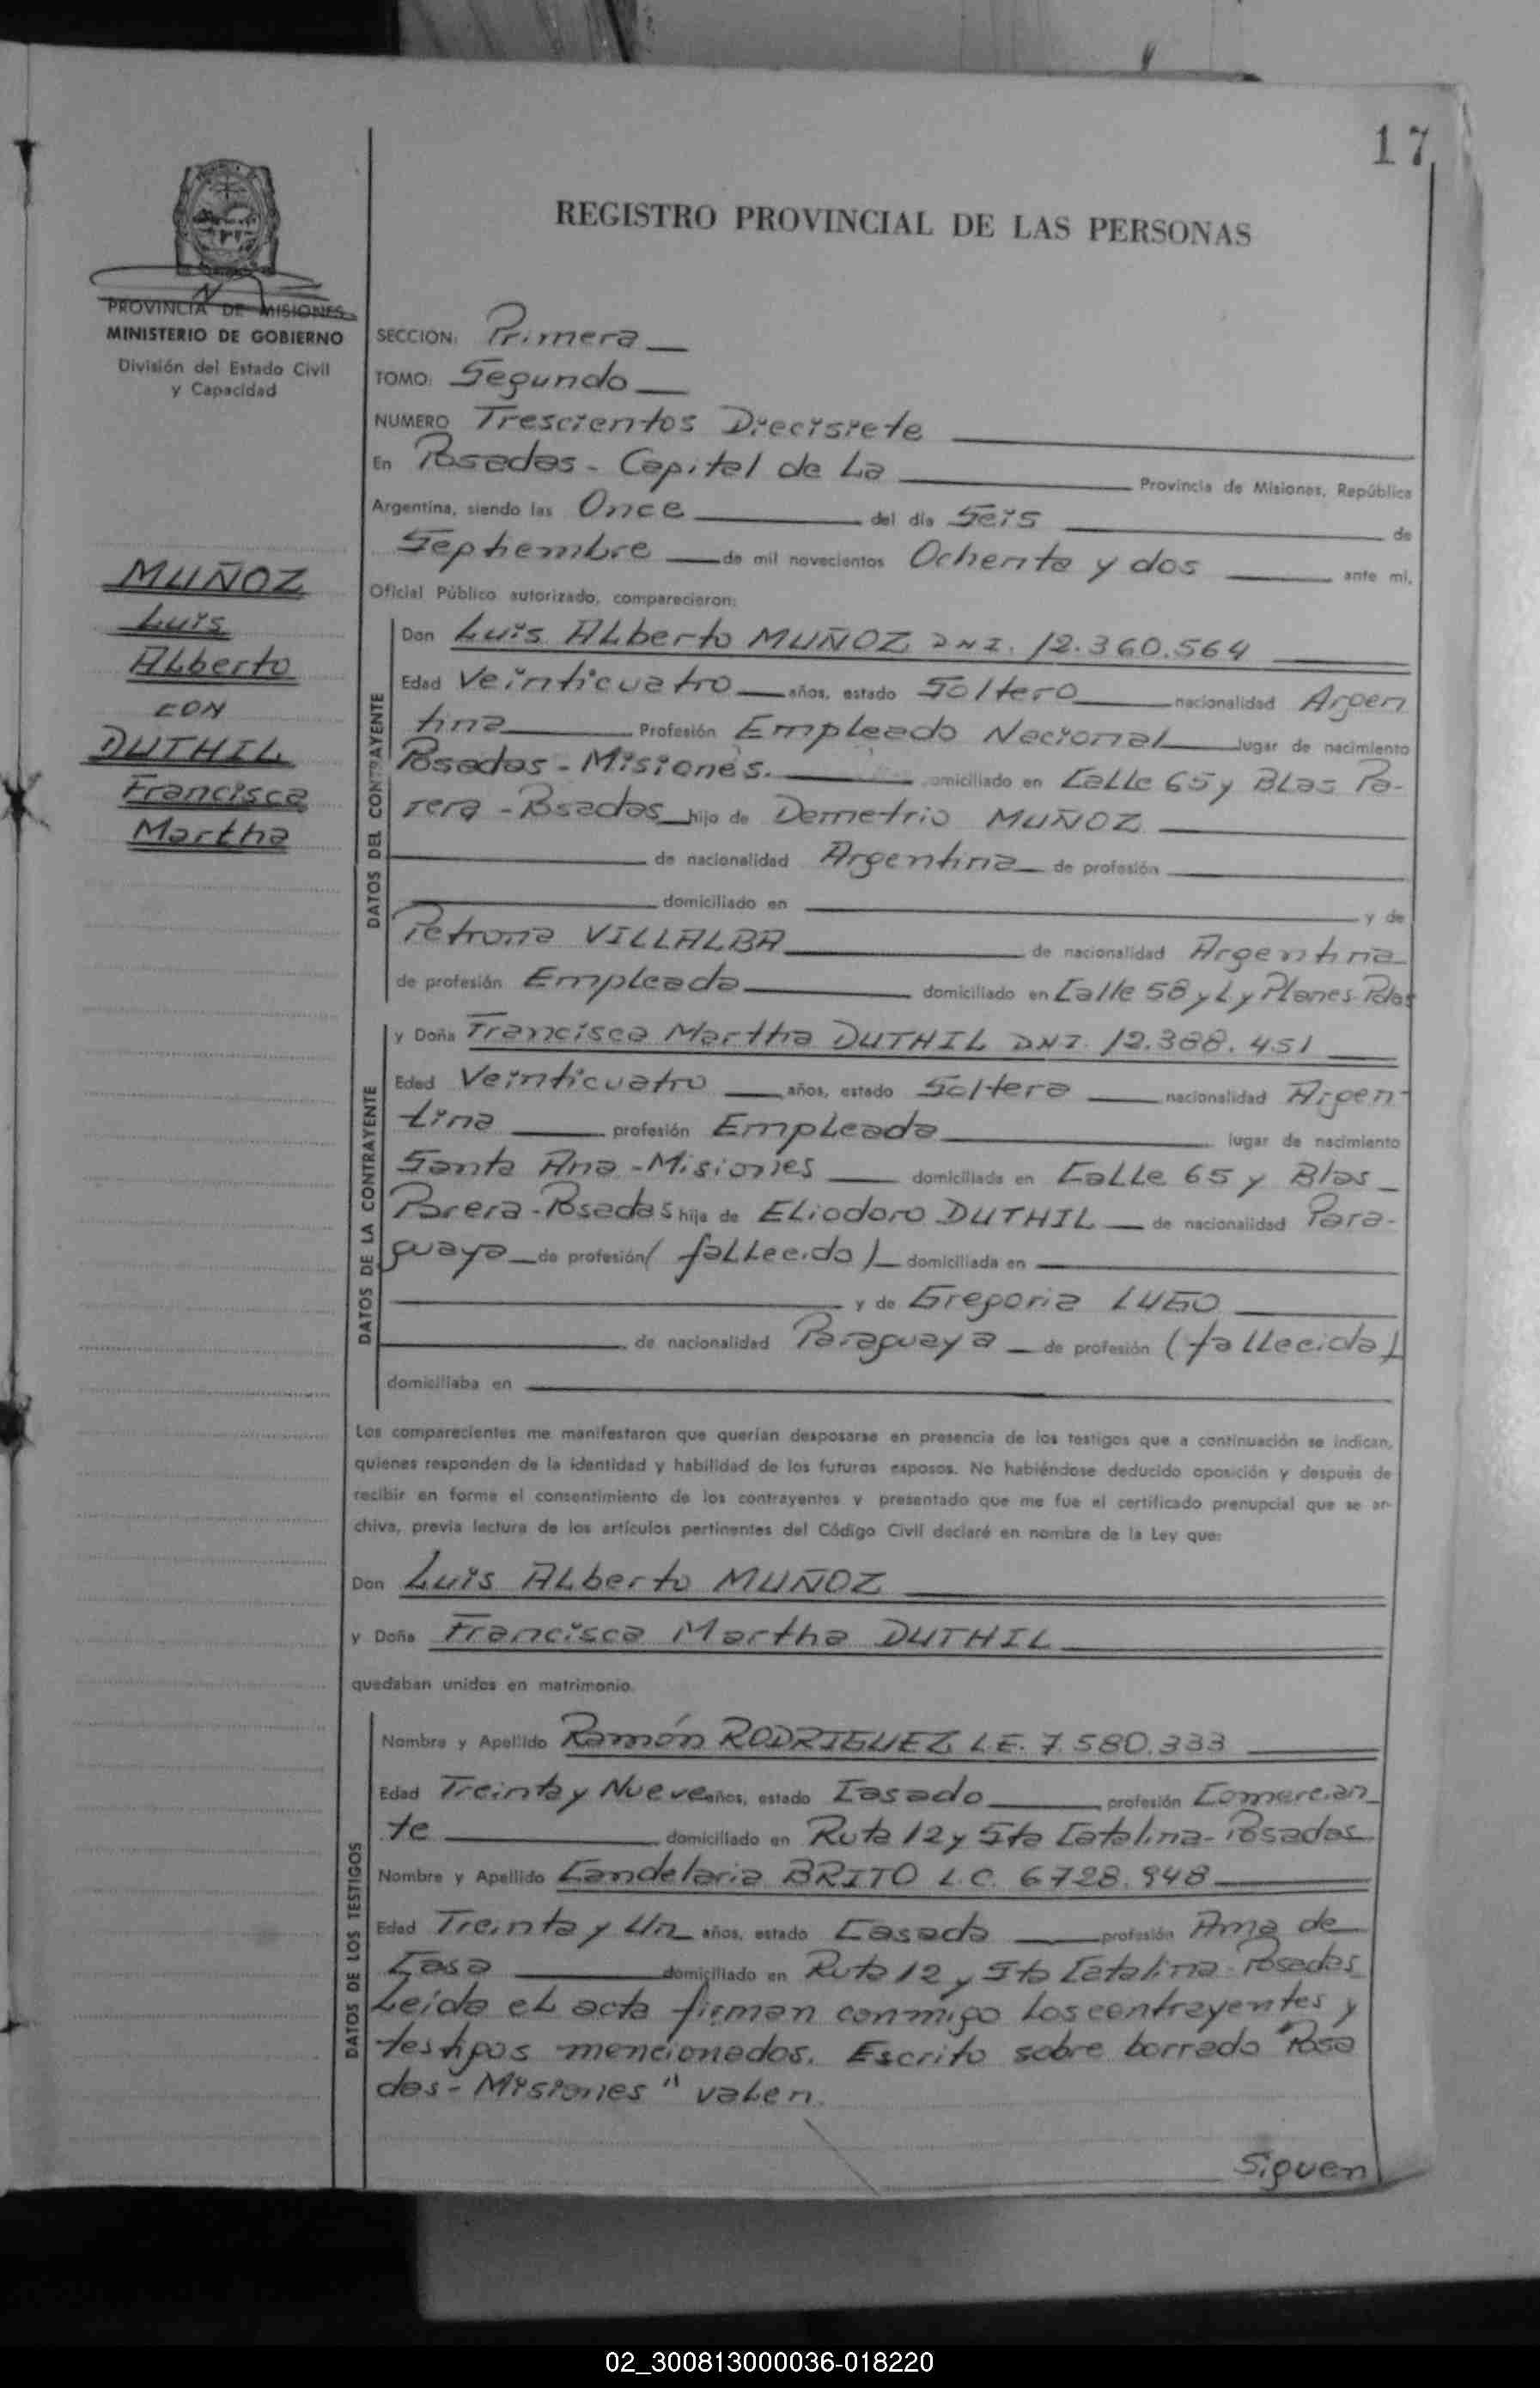 17
REGISTRO PROVINCIAL DE LAS PERSONAS
PROVINCIA DE MISIONES
MINISTERIO DE GOBIERNO
División del Estado Civil
y Capacidad
MUÑOZ
Luis
Alberto
CON
DUTHIL
Francisca
Martha
SECCION: Primera
TOMO: Segundo
NUMERO Trescientos Diecisiete
En Posadas - Capital de La Provincia de Misiones, República
Argentina, siendo las Once del día Seis de
Septiembre de mil novecientos Ochenta y dos ante mi,
Oficial Público autorizado, comparecieron:
DATOS DEL CONTRAYENTE
Don Luis Alberto MUÑOZ DNI. 12.360.564
Edad Veinticuatro años, estado Soltero nacionalidad Argen
tina Profesión Empleado Nacional lugar de nacimiento
Posadas - Misiones. domiciliado en Calle 65 y Blas Pa-
rera - Posadas hijo de Demetrio MUÑOZ
de nacionalidad Argentina de profesión
domiciliado en y de
Petrona VILLALBA de nacionalidad Argentina
de profesión Empleada domiciliado en Calle 58 y L y Planes - Pdas
DATOS DE LA CONTRAYENTE
y Doña Francisca Martha DUTHIL DNI. 12.388.451
Edad Veinticuatro años, estado Soltera nacionalidad Argen-
tina profesión Empleada lugar de nacimiento
Santa Ana - Misiones domiciliada en Calle 65 y Blas
Parera - Posadas hija de Eliodoro DUTHIL de nacionalidad Para-
guaya de profesión (fallecido) domiciliada en
y de Gregoria LUGO
de nacionalidad Paraguaya de profesión (fallecida)
domiciliaba en
Los comparecientes me manifestaron que querían desposarse en presencia de los testigos que a continuación se indican,
quienes responden de la identidad y habilidad de los futuros esposos. No habiéndose deducido oposición y después de
recibir en forma el consentimiento de los contrayentes y presentado que me fue el certificado prenupcial que se ar-
chiva, previa lectura de los artículos pertinentes del Código Civil declaré en nombre de la Ley que:
Don Luis Alberto MUÑOZ
y Doña Francisca Martha DUTHIL
quedaban unidos en matrimonio.
DATOS DE LOS TESTIGOS
Nombre y Apellido Ramón RODRIGUEZ L.E. 7.580.333
Edad Treinta y Nueve años, estado Casado profesión Comercian
te domiciliado en Ruta 12 y Sta Catalina - Posadas
Nombre y Apellido Candelaria BRITO L.C. 6728.948
Edad Treinta y Un años, estado Casada profesión Ama de
Casa domiciliado en Ruta 12 y Sta Catalina - Posadas
Leída el acta firman conmigo los contrayentes y
testigos mencionados. Escrito sobre borrado "Posa
das - Misiones" valen.
Siguen
02_300813000036-018220